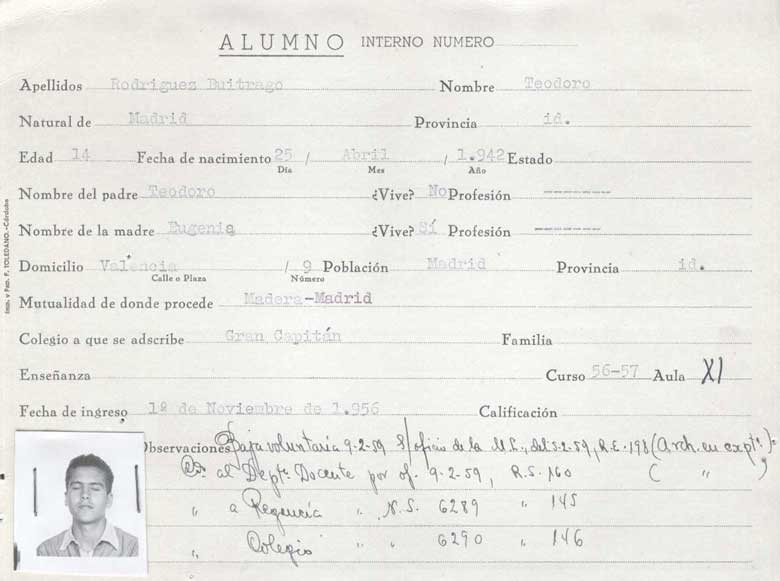 ALUMNO INTERNO NUMERO
Apellidos Rodriguez Buitrago Nombre Teodoro
Natural de Madrid Provincia id.
Edad 14 Fecha de nacimiento 25 / Abril / 1.942 Estado
Día Mes Año
Nombre del padre Teodoro ¿Vive? No Profesión -------
Nombre de la madre Eugenia ¿Vive? Sí Profesión -------
Domicilio Valencia / 9 Población Madrid Provincia id.
Calle o Plaza Número
Mutualidad de donde procede Madera-Madrid
Colegio a que se adscribe Gran Capitán Familia
Enseñanza Curso 56-57 Aula XI
Fecha de ingreso 1º de Noviembre de 1.956 Calificación
Observaciones Baja voluntaria 9-2-59 S/ oficio de la U.L., del 5-2-59, R.E. 198 (Arch. en expte.)=
al Deptº Docente por of. 9-2-59, R.S. 160 ( " )
" a Regencia " N.S. 6289 " 145
" Colegio " " 6290 " 146
Imp. y Pap. F. TOLEDANO.-Córdoba